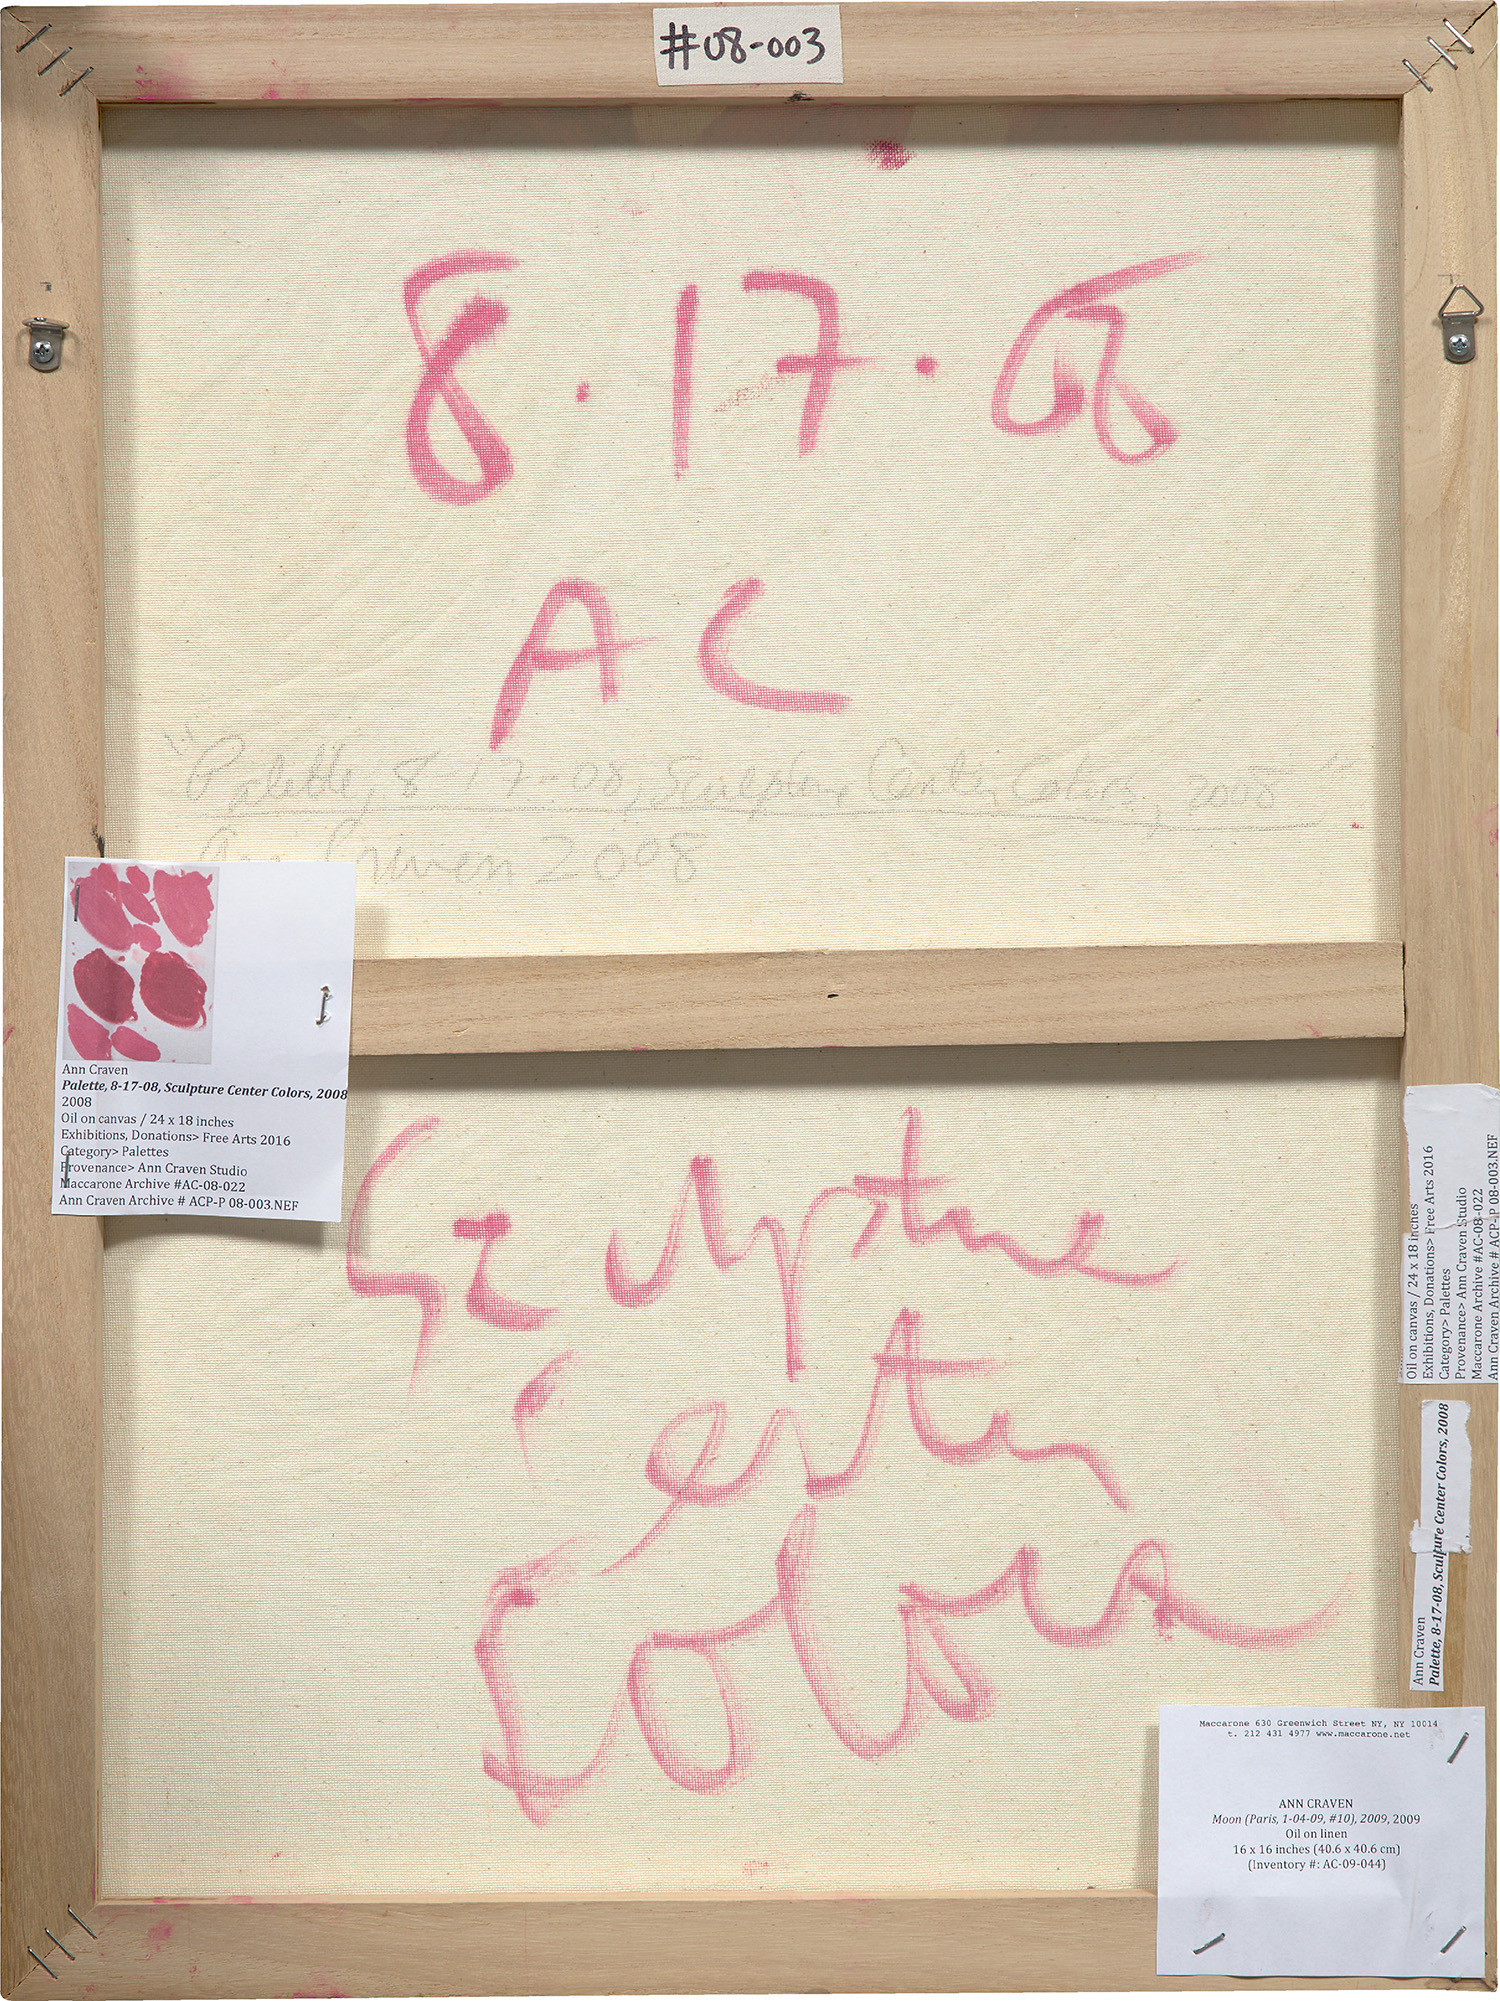 #08-003
8.17.08
AC
"Palette, 8-17-08, Sculpture Center Colors, 2008"
Ann Craven 2008
Ann Craven
Palette, 8-17-08, Sculpture Center Colors, 2008
2008
Oil on canvas / 24 x 18 inches
Exhibitions, Donations> Free Arts 2016
Category> Palettes
Provenance> Ann Craven Studio
Maccarone Archive #AC-08-022
Ann Craven Archive # ACP-P 08-003.NEF
Sculpture
Center
Colors
Oil on canvas / 24 x 18 inches
Exhibitions, Donations> Free Arts 2016
Category> Palettes
Provenance> Ann Craven Studio
Maccarone Archive #AC-08-022
Ann Craven Archive # ACP-P 08-003.NEF
Ann Craven
Palette, 8-17-08, Sculpture Center Colors, 2008
Maccarone 630 Greenwich Street NY, NY 10014
t. 212 431 4977 www.maccarone.net
ANN CRAVEN
Moon (Paris, 1-04-09, #10), 2009, 2009
Oil on linen
16 x 16 inches (40.6 x 40.6 cm)
(Inventory #: AC-09-044)